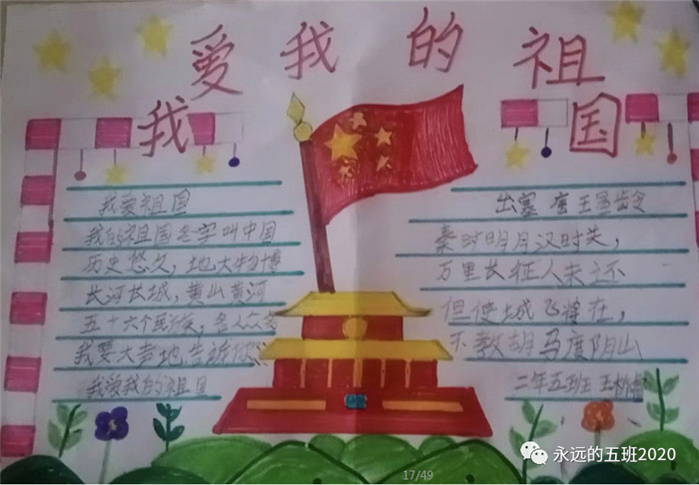 我爱我的祖国
我爱祖国
我的祖国名字叫中国
历史悠久，地大物博
长河长城，黄山黄河
五十六个民族，名人众多
我要大声地告诉你
我爱我的祖国
出塞 唐 王昌龄
秦时明月汉时关，
万里长征人未还
但使龙城飞将在，
不教胡马度阴山
二年五班 王
永远的五班2020
17/49